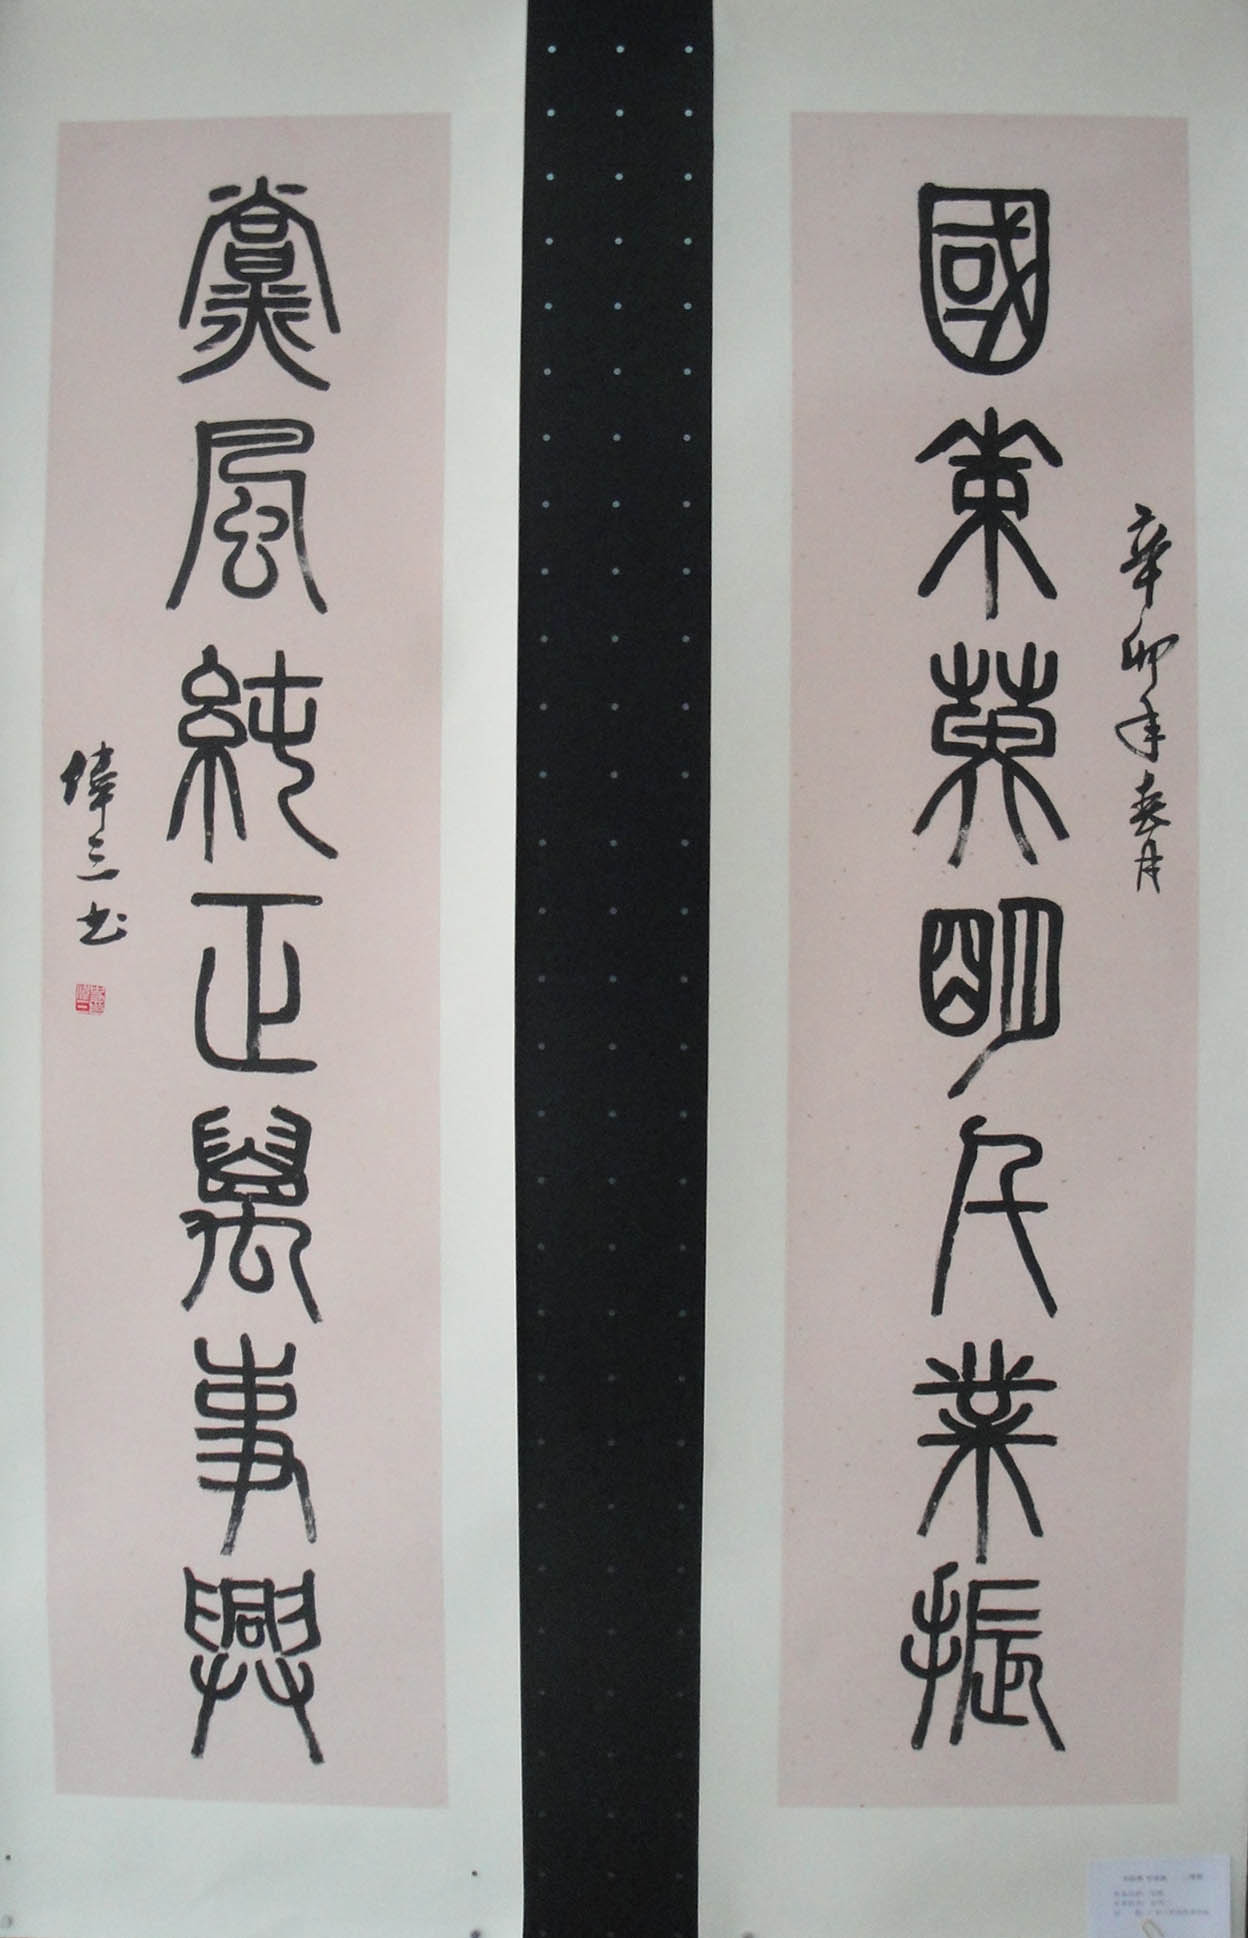 國策英明民業振
辛卯年春月
黨風純正萬事興
偉三书